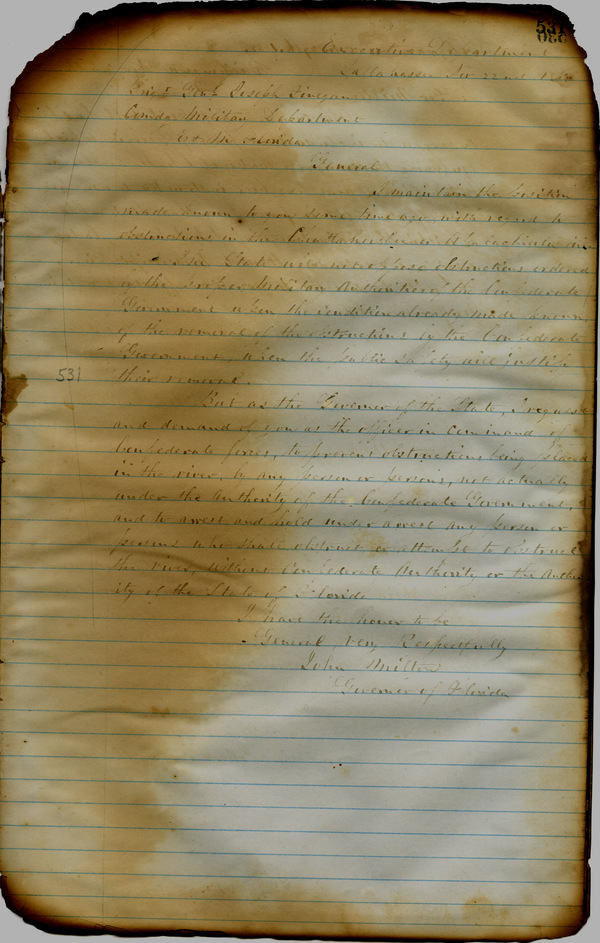 531
Executive Department
Tallahassee Nov 22nd
Brigr Genl Joseph Finegan
Comdg Military Department
East Florida
General
I maintain the position
made known to you some time ago, with regard to
obstructions in the Chattahoochee or Apalachicola
The State will not oppose obstructions ordered
by the proper Military Authorities of the Confederate
Government upon the condition already made known
of the removal of the obstructions by the Confederate
Government, when the public safety will justify
531
their removal.
But as the Governor of the State, I request
and demand of you as the officer in command of
Confederate forces, to prevent obstructions being placed
in the river, by any person or persons, not actually
under the Authority of the Confederate Government,
and to arrest and hold under arrest any person or
persons who shall obstruct or attempt to obstruct
the river, without Confederate Authority or the Author
ity of the State of Florida
I have the honor to be
General Very Respectfully
John Milton
Governor of Florida